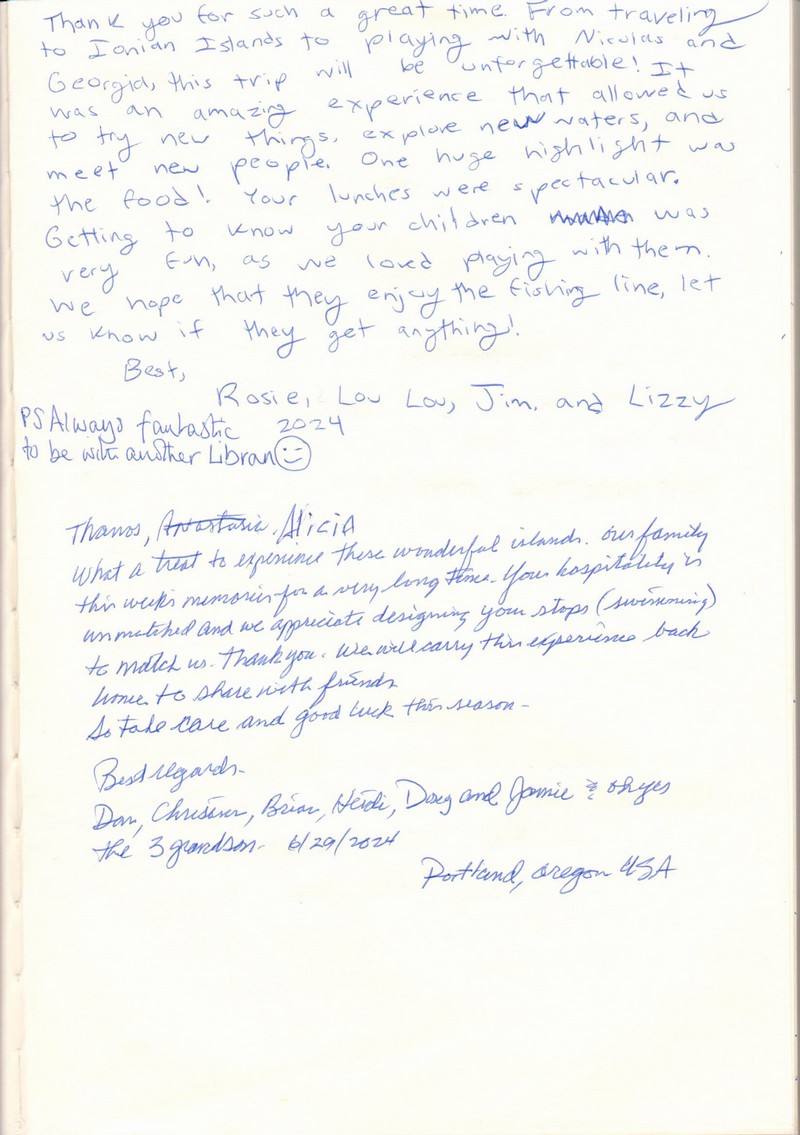 Thank you for such a great time. From traveling
to Ionian Islands to playing with Nicolas and
Georgia, this trip will be unforgettable! It
was an amazing experience that allowed us
to try new things, explore new waters, and
meet new people. One huge highlight was
the food! Your lunches were spectacular.
Getting to know your children was
very fun, as we loved playing with them.
We hope that they enjoy the fishing line, let
us know if they get anything!
Best,
Rosie, Lou Lou, Jim, and Lizzy
2024
PS Always fantastic
to be with another Libran
Thanos, Anastasia, Alicia
What a treat to experience these wonderful islands. Our family
this weeks memories for a very long time. Your hospitality is
unmatched and we appreciate designing your stops (swimming)
to match us. Thank you. We will carry this experience back
home to share with friends
So take care and good luck this season-
Best regards-
Dan, Christine, Brian, Heidi, Doug and Jamie & oh yes
the 3 grandson- 6/29/2024
Portland, Oregon USA